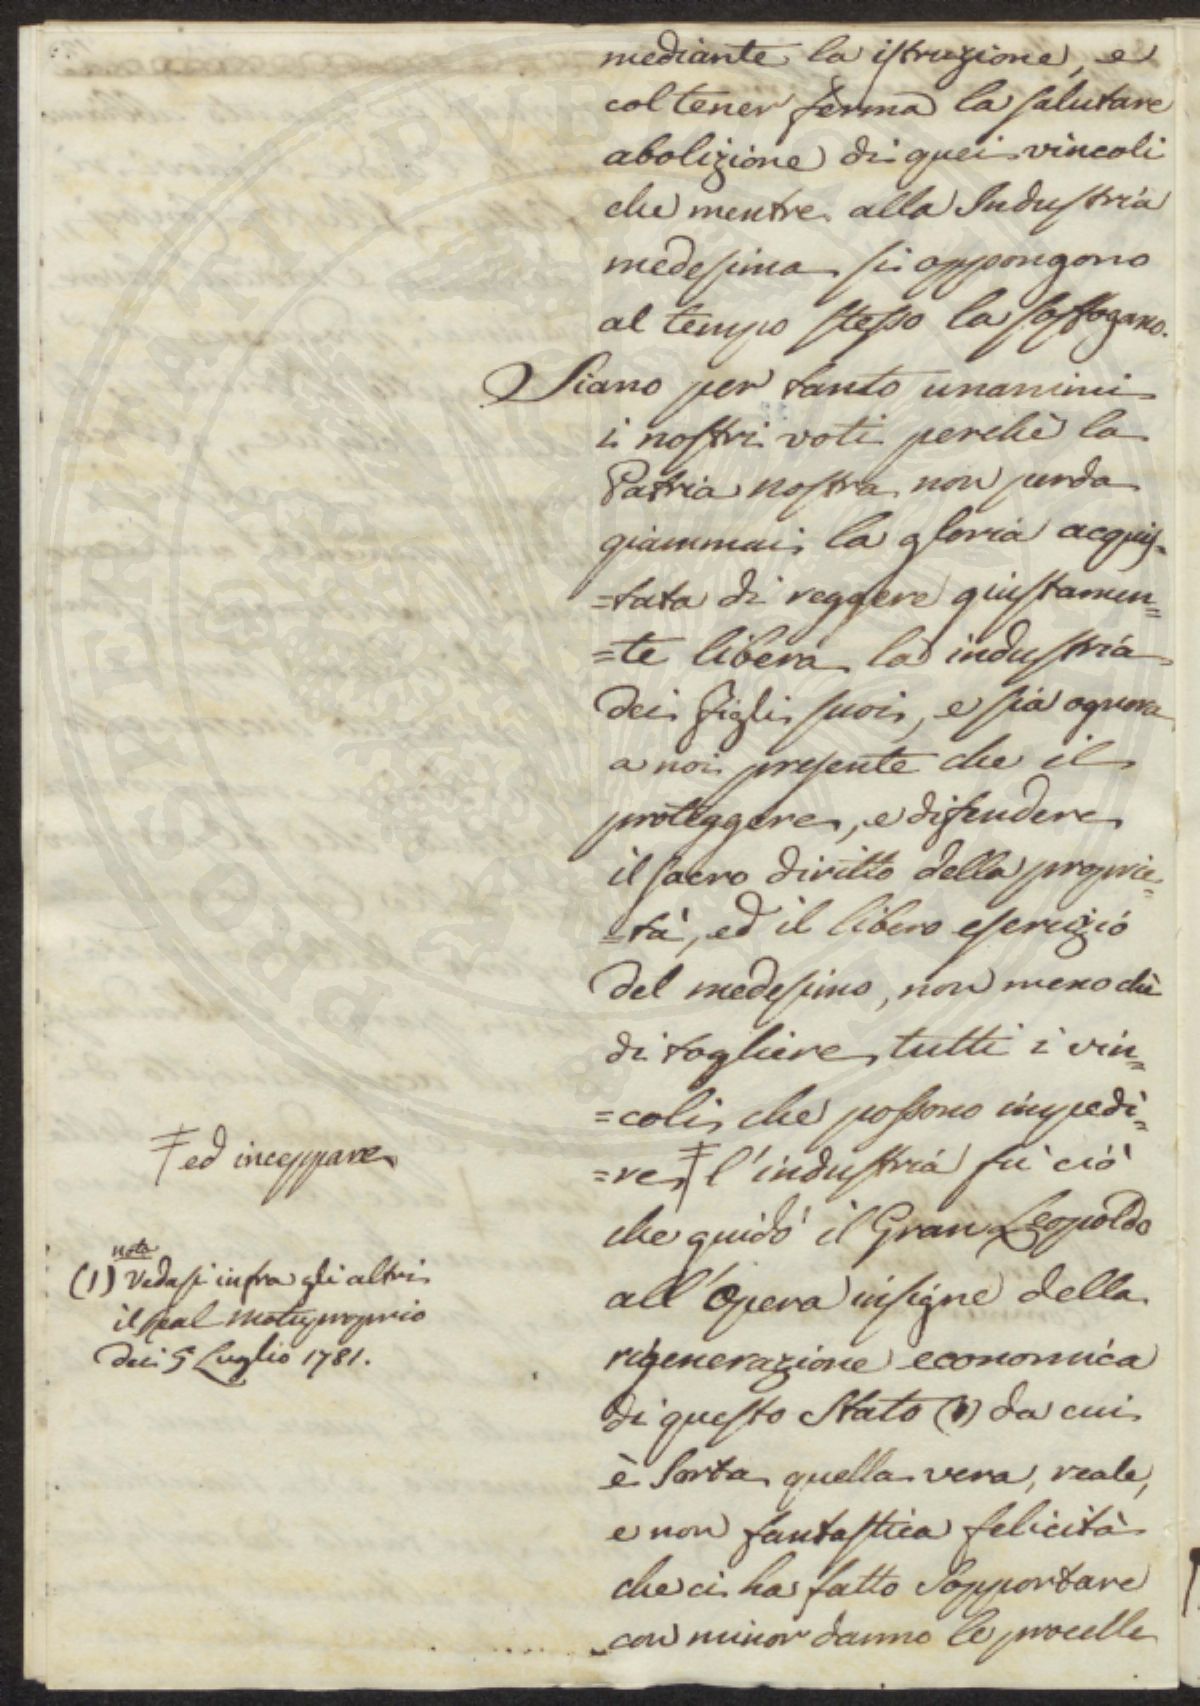 mediante la istruzione, e
col tener ferma la salutare
abolizione di quei vincoli
che mentre alla Industria
medesima si oppongono
al tempo stesso la soffogano.
Siano per tanto unanimi
i nostri voti perchè la
Patria nostra non perda
giammai la gloria acquis-
=tata di reggere giustamen=
=te libera la industria
dei figli suoi, e sia ognora
a noi presente che il
proteggere, e difendere
il sacro diritto della proprie=
=tà, ed il libero esercizio
del medesimo, non meno che
di togliere tutti i vin=
=coli che possono impedi=
=re ǂ l'industria fù ciò
che guidò il Gran Leopoldo
all'opera insigne della
rigenerazione economica
di questo Stato (1) da cui
è sorta quella vera, reale,
e non fantastica felicità
che ci ha fatto sopportare
con minor danno le procelle
ǂ ed inceppare
nota
(1) Vedasi infra gli altri
il Real Motuproprio
dei 5 Luglio 1781.